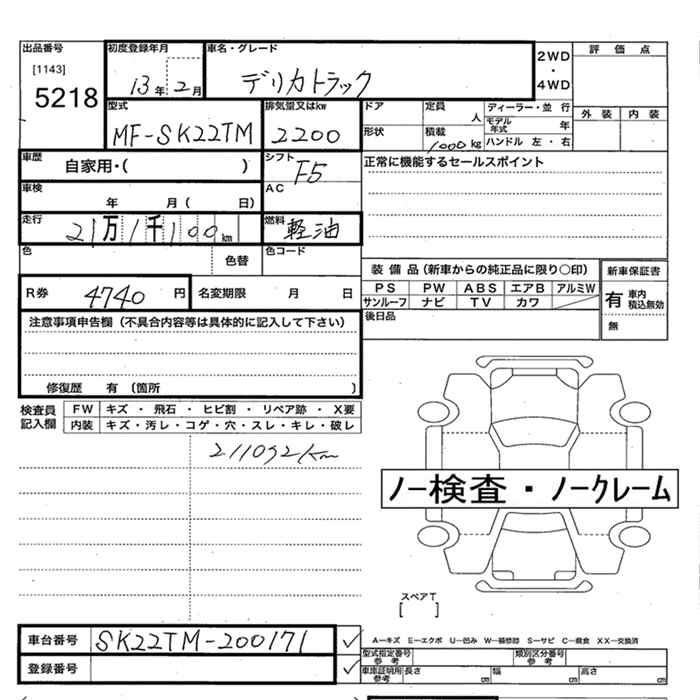 出品番号 初度登録年月 車名・グレード 2WD ・ 4WD 評価点
[1143]
5218
13年2月 デリカトラック
外装 内装
型式 排気量又はkw ドア 定員 人 ディーラー・並行
MF-SK22TM 2200 形状 積載 1000kg モデル年式 年
ハンドル 左・右
車歴 自家用・( ) シフト F5 正常に機能するセールスポイント
車検 年 月( 日) AC
走行 21万1千100km 燃料 軽油
色 色替 色コード
装備品(新車からの純正品に限り○印) 新車保証書
R券 4740円 名変期限 月 日
PS PW ABS エアB アルミW
サンルーフ ナビ TV カワ
有 車内積込無効
無
後日品
注意事項申告欄(不具合内容等は具体的に記入して下さい)
修復歴 有(箇所 )
検査員記入欄 FW キズ・飛石・ヒビ割・リペア跡・X要
内装 キズ・汚レ・コゲ・穴・スレ・キレ・破レ
211092km
ノー検査・ノークレーム
スペアT
[ ]
車台番号 SK22TM-200171
A-キズ E-エクボ U-凹み W-補修跡 S-サビ C-腐食 XX-交換済
型式指定番号 参考 類別区分番号 参考
登録番号 車庫証明用参考 長さ cm 幅 cm 高さ cm